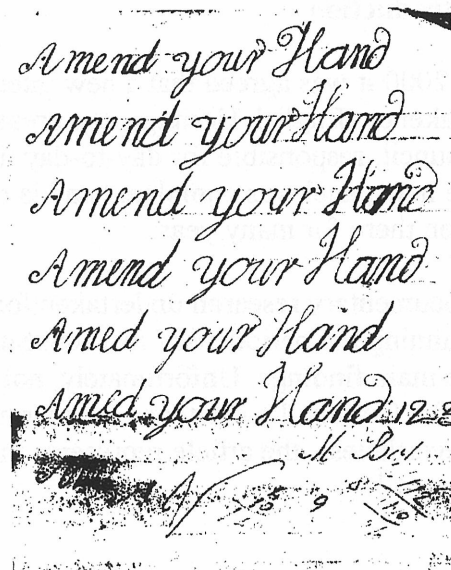 Amend your Hand
Amend your Hand
Amend your Hand
Amend your Hand
Amed your Hand
Amed your Hand 12
M
A 15 9 8